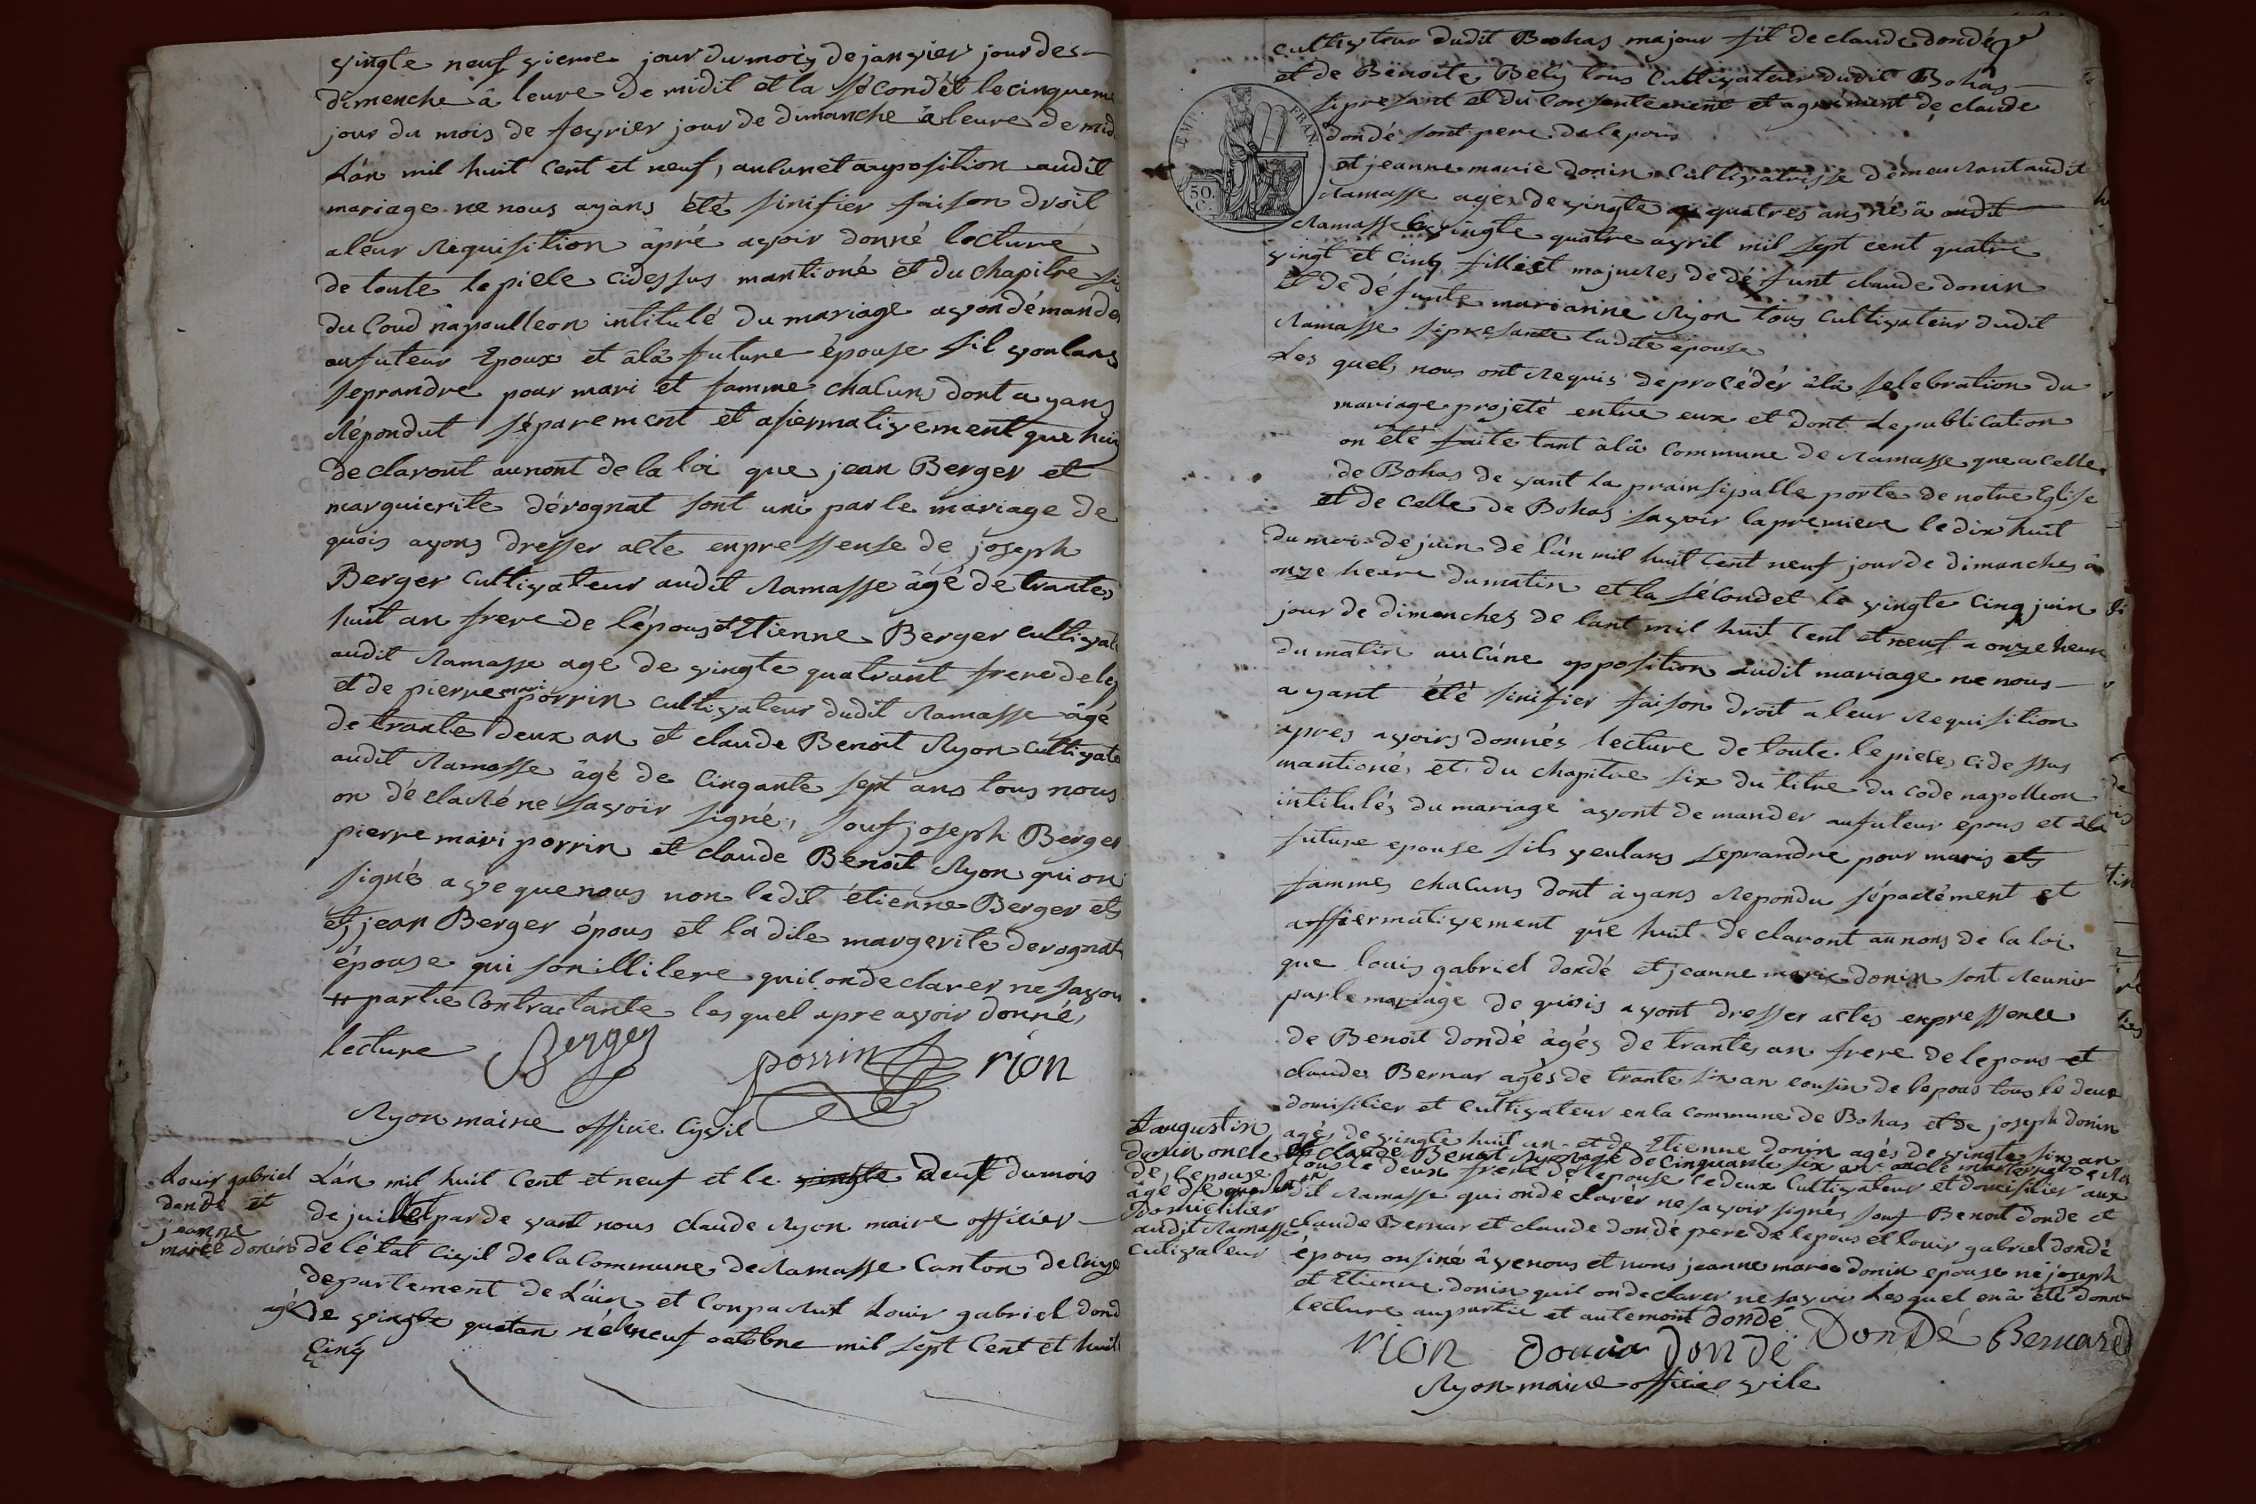 vingte neuf vieme jour du mois de janvier jour de
dimenche â leure de midit et la secondét le cinquieme
jour du mois de fevrier jour de dimanche â leure de mid
L'an mil huit Cent et neuf, aucunet auposition audit
mariage ne nous ayans été sinifier faison droit
a leur Requisition âpré avoir donné lecture
de toute le piece cidessus mantioné et du chapitre si
du Coud napoulleon intitulé du mariage avon démandé
au futeur Epoux et âlâ future épouse sil voulans
seprandre pour mari et famme chacun dont ayans
Répondut séparement et afiermativement que huis
declaront au nont de la loi que jean Berger et
marguierite dérognat sont uni par le mariage de
quois avons dresser acte enpressense de joseph
Berger Cultivateur audit Ramasse âgé de trante
huit an frere de l'épous et Etienne Berger cultivat
audit Ramasse age de vingte quatrant frere de lep
et de pierre mari porrin cultivateur dudit Ramasse âgé
de trante deux an et claude Benoit Ryon cultivate
audit Ramasse âgé de Cinqante sept ans tous nous
on déclaré ne savoir signé, souf joseph Berger
pierre mari porrin et claude Benoit Ryon qui on
signé aveque nous non ledit étienne Berger et
et jean Berger épous et la dite margerite derognat
épouse qui son illitere quil on declarer ne savoir
# partie Contractante les quel apre avoir donné
lecture Berger porrin rion
Ryon maire officie Civil
Louis gabriel
dondé et
jeanne
marie donin
L'an mil huit Cent et neuf et le vingte deux du mois
de juillet par de vant nous claude Ryon maire officier
de l'état Civil de la Commune de Ramasse Canton de Ceyze
departement de L'ain et Conparut Louis gabriel Dond
agé de vingte quatan né le neuf octobre mil sept Cent et huit
Cinq
cultivteur dudit Bohas majour fil de claude dondé
et de Benoite Bely tous Cultivateur dudit Bohas
sipresant et du Consentement et agrément de claude
dondé sont pere de lepous
et jeanne marie donin Cultivatrisse démeurant audit
Ramasse ages de vingte quatres ans nés â audit
Ramasse le vingte quatre avril mil sept cent quatre
vingt et Cinq filliet majures de défunt claude donin
Et de défunte marianne Ryon tous Cultivateur dudit
Ramasse sipresante ladite épouse
Les quels nous ont Requis de procédér âlâ selebration du
mariage projeté entre eux et dont le publication
on été faite tant âlâ Commune de Ramasse que a Celle
de Bohas de vant la prainsipalle porte de notre Eglise
et de Celle de Bohas savoir la premiere le dix huit
du moi de juin de l'an mil huit Cent neuf jour de dimanches â
onze heure du matin et la sécondet le vingte Cinq juin
jour de dimenches de lant mil huit Cent et neuf a onze heure
du matin auCune opposition audit mariage ne nous
ayant été sinifier faison droit a leur Requisition
apres avoirs donnés lecture de toute le piece cidessus
mantioné et du chapitre six du titre du code napolleon
intitulés du mariage avont demander aufuteur epous et âla
future epouse sils veulans seprandre pour maris et
fammes chaCuns dont âyans Repondu séparément et
affiermativement que huit declaront au nons de la loi
que louis gabriel dondé et jeanne marie donin sont Reunir
par le mariage de quois avont dresser actes enpressence
de Benoit dondé âgés de trante an frere de lepous et
claude Bernar agés de trante six an cousin de lepous tous le deux
domisilier et Cultivateur en la Commune de Bohas et de joseph donin
agés de vingte huit an et de Etienne donin agés de vingte six an
tous le deux frere de lepouse le deux Cultivateur et domisilier aux
et claude Benoit Ryon âgé de Cinquante six an oncle maternel
dit Ramasse qui on déclarér ne savoir signés souf Benoit dondé et
claude Bernar et claude dondé pere de lepous et louis gabriel dondé
épous on siné âvenous et nons jeanne marie donin epouse ni joseph
et Etienne donin quil on declarer ne savoir Les quel en â été donn
lecture aupartie et autemoint dondé
& augustin
donin oncle
de lepouse
âgé de
domicilier
audit Ramasse
Cultivateur
rion donin Dondé DonDé Bernard
Ryon maire officier vile